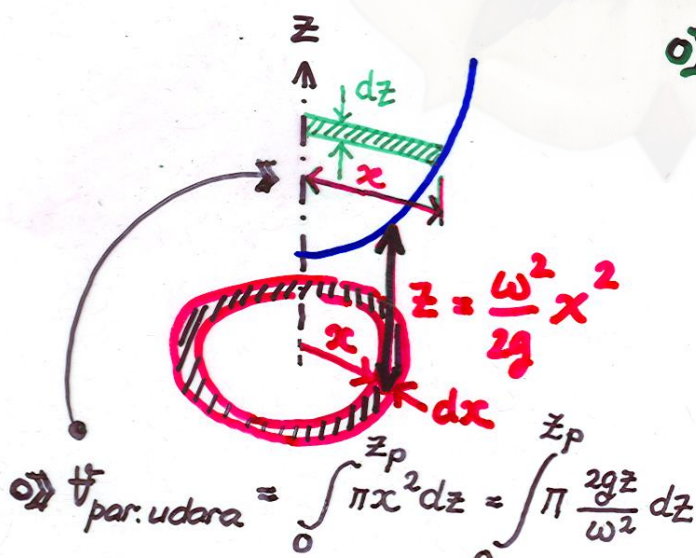 z
o⟫
dz
x
z = ω²/2g x²
x
dx
o⟫ V par. udara = ∫₀^zp πx² dz = ∫₀^zp π 2gz/ω² dz